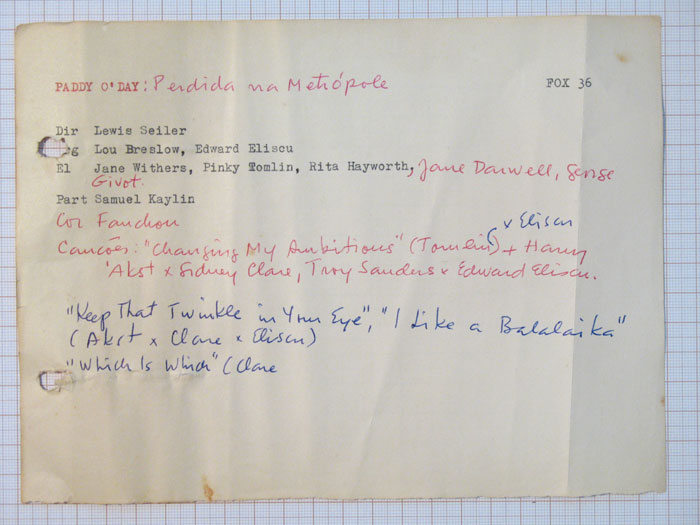 PADDY O'DAY: Perdida na Metrópole FOX 36
Dir Lewis Seiler
Arg Lou Breslow, Edward Eliscu
El Jane Withers, Pinky Tomlin, Rita Hayworth, Jane Darwell, George
Givot.
Part Samuel Kaylin
Cor Fanchon
x Eliscu
Canções: "Changing My Ambitions" (Tomlin) + Harry
Akst x Sidney Clare, Troy Sanders x Edward Eliscu.
"Keep That Twinkle in Your Eye", "I Like a Balalaika"
(Akst x Clare x Eliscu)
"Which Is Which" (Clare